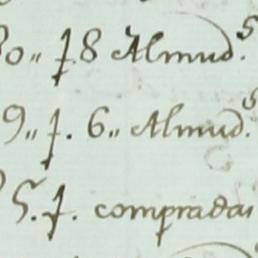 30,, f. 8 Almud.s
9,, f. 6,, Almud.s
5. f. compradas